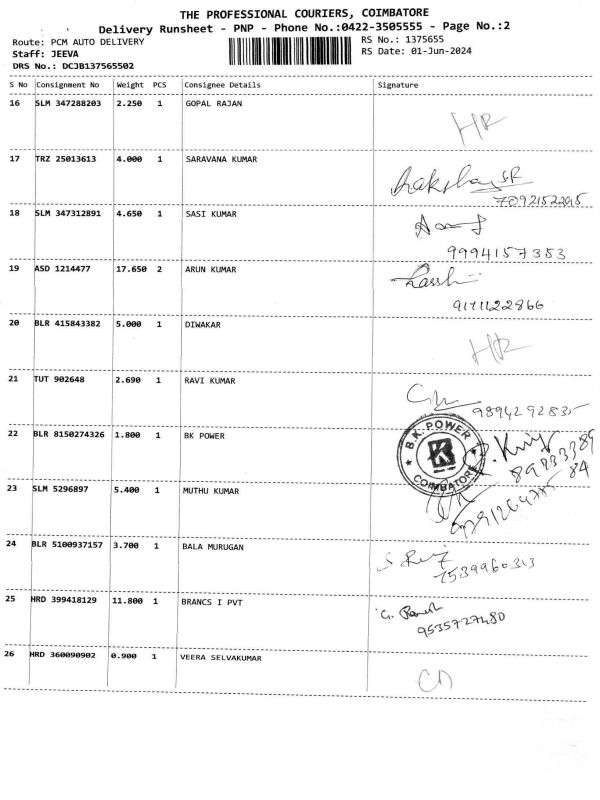 THE PROFESSIONAL COURIERS, COIMBATORE
Delivery Runsheet - PNP - Phone No.:0422-3505555 - Page No.:2
Route: PCM AUTO DELIVERY RS No.: 1375655
Staff: JEEVA RS Date: 01-Jun-2024
DRS No.: DCJB137565502
S No Consignment No Weight PCS Consignee Details Signature
16 SLM 347288203 2.250 1 GOPAL RAJAN
HR
17 TRZ 25013613 4.000 1 SARAVANA KUMAR
18 SLM 347312891 4.650 1 SASI KUMAR
9994157353
19 ASD 1214477 17.650 2 ARUN KUMAR
9171122866
20 BLR 415843382 5.000 1 DIWAKAR
HR
21 TUT 902648 2.690 1 RAVI KUMAR
22 BLR 8150274326 1.800 1 BK POWER
B.K. POWER
COIMBATORE
23 SLM 5296897 5.400 1 MUTHU KUMAR
24 BLR 5100937157 3.700 1 BALA MURUGAN
7539960313
25 HRD 399418129 11.800 1 BRANCS I PVT
G. Ramesh
9535727480
26 HRD 360090902 0.900 1 VEERA SELVAKUMAR